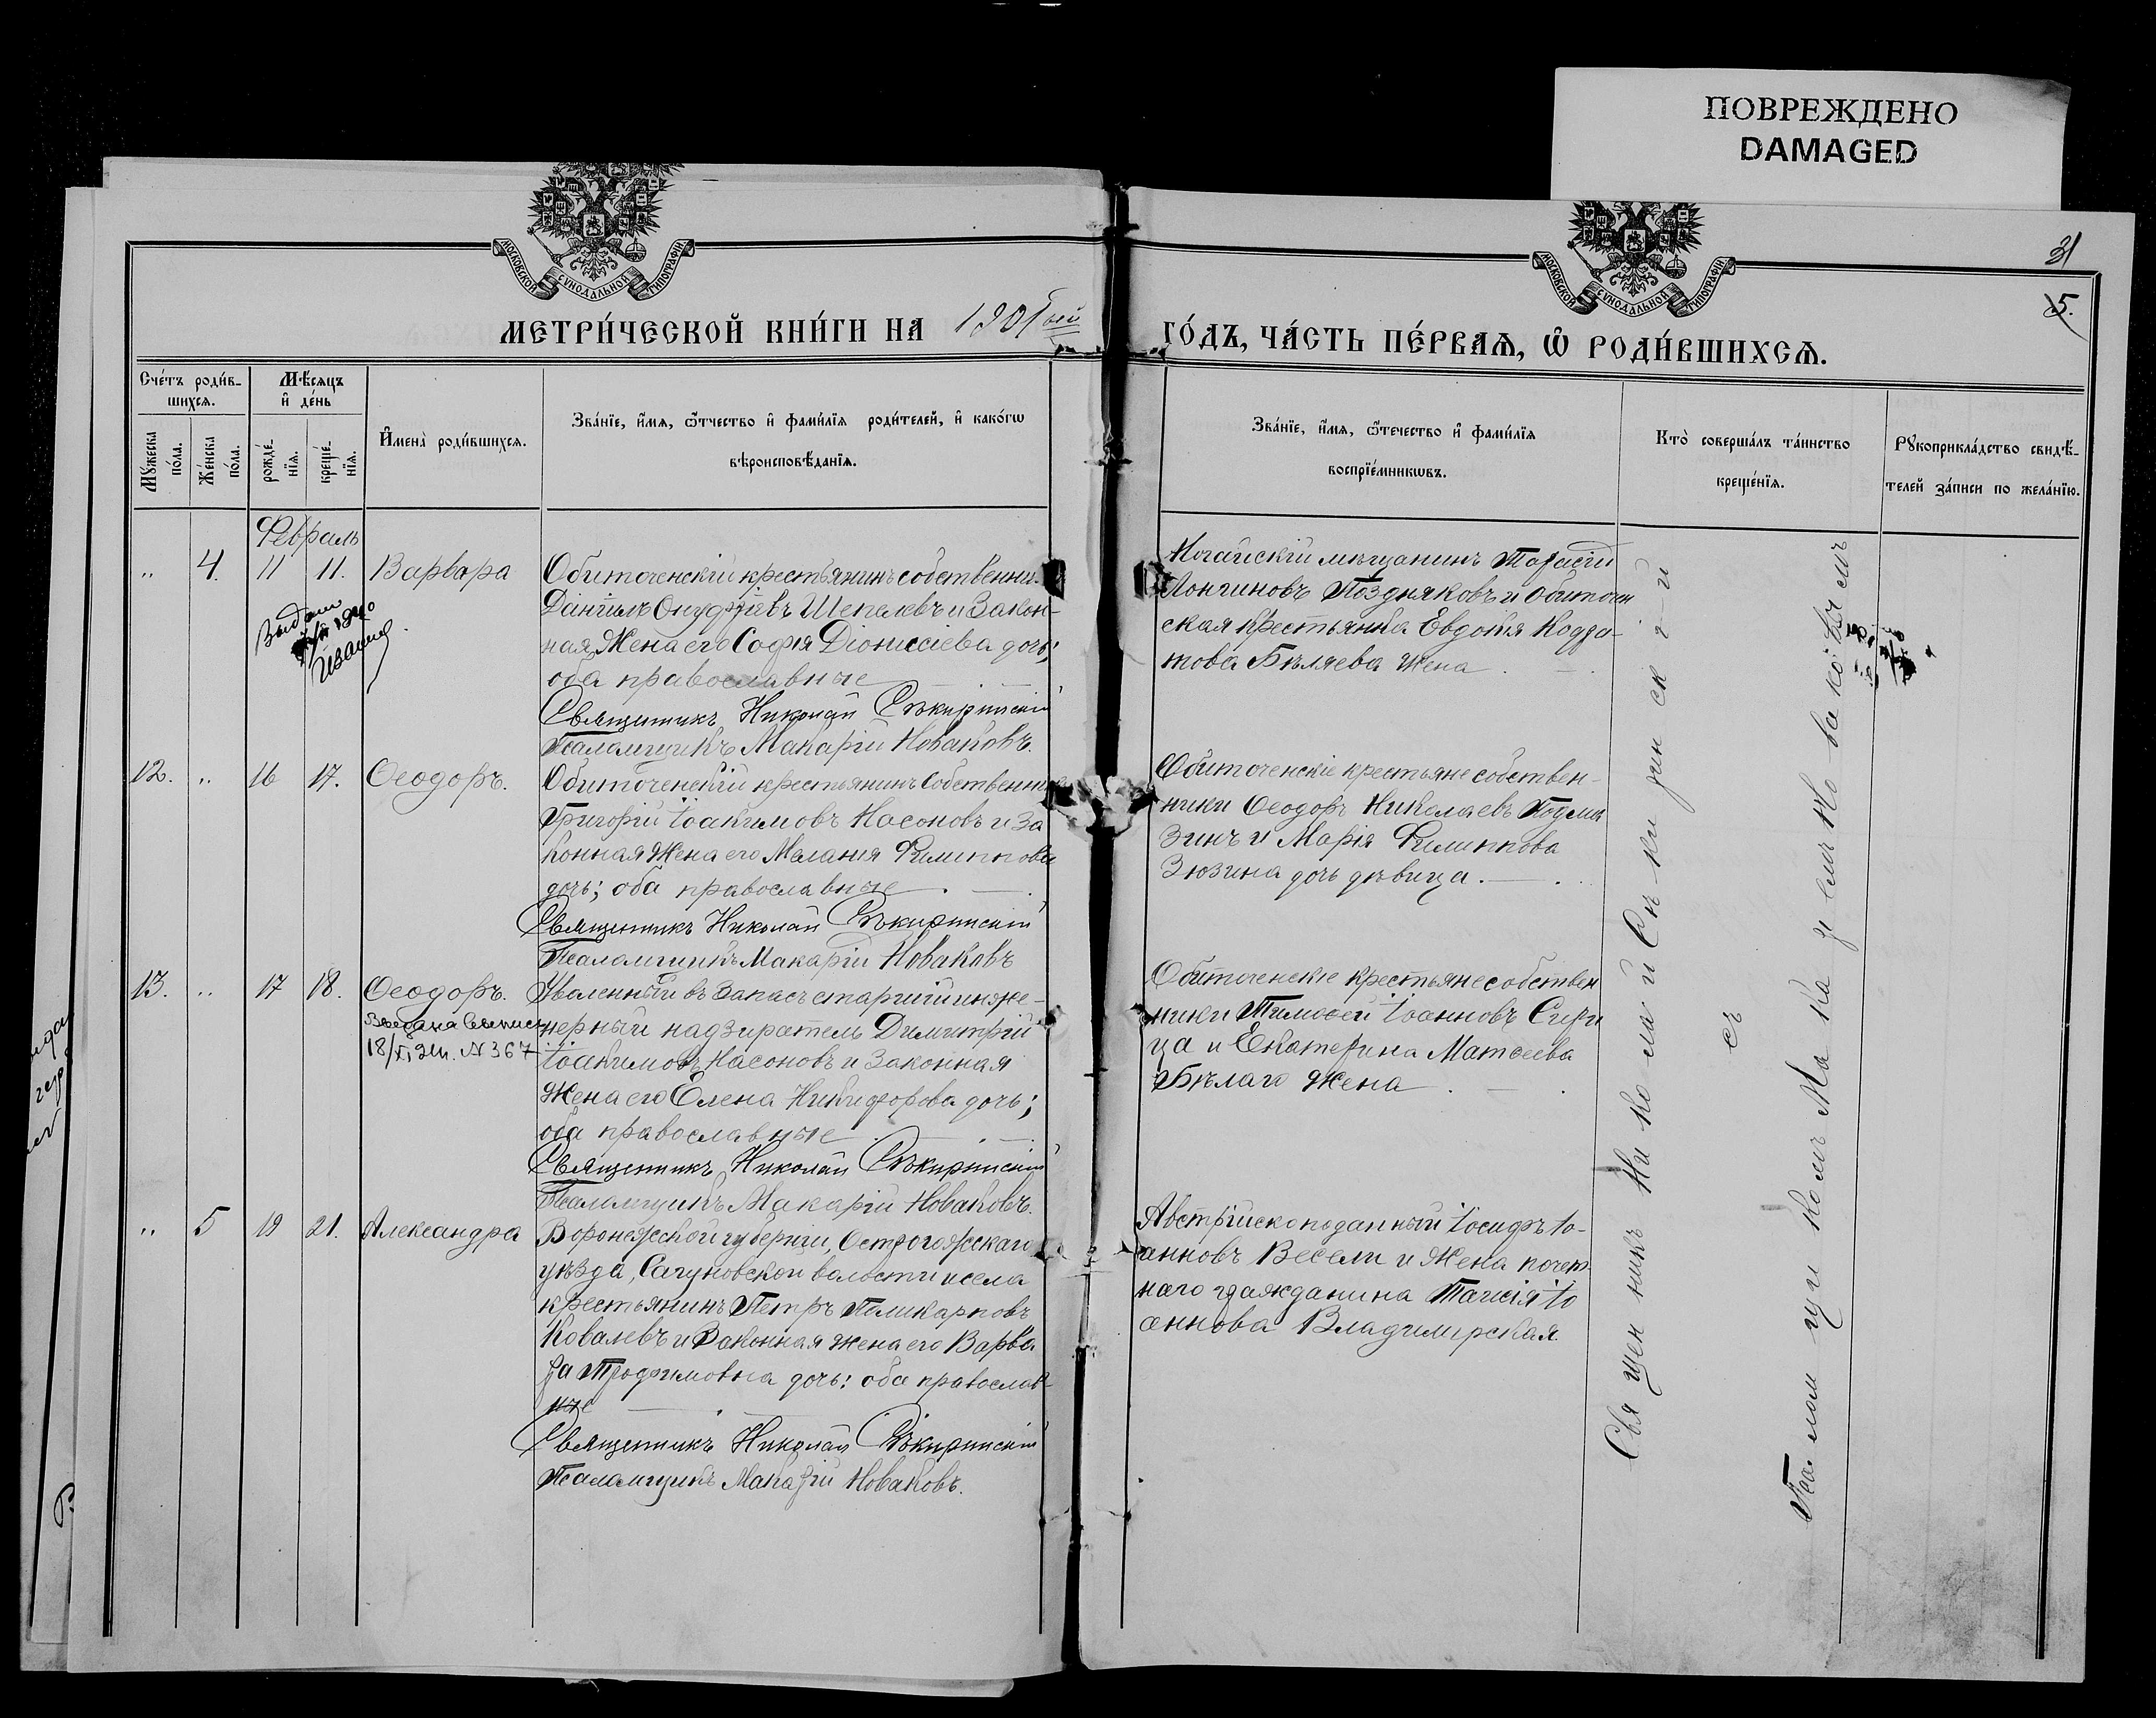 ПОВРЕЖДЕНО
DAMAGED
МОСКОВСКОЙ СУНОДАЛЬНОЙ ТИПОГРАФІИ
МОСКОВСКОЙ СУНОДАЛЬНОЙ ТИПОГРАФІИ
31
5.
МЕТРИ́ЧЕСКОЙ КНИ́ГИ НА 1901 ый
ГО́ДЪ, ЧА́СТЬ ПЕ́РВАѦ, Ѡ҆ РОДИ́ВШИХСѦ.
Сче́тъ роди́в-
шихсѧ.
Мꙋжеска по́ла.
Же́нска по́ла.
Мѣ́сѧцъ
и҆ де́нь
рожде́-
нїѧ.
креще́-
нїѧ.
И҆мена̀ роди́вшихсѧ.
Зва́нїе, и҆́мѧ, ѻ҆́тчество и҆ фами́лїѧ роди́телей, и҆ како́гѡ
вѣроисповѣ́данїѧ.
Зва́нїе, и҆́мѧ, ѻ҆́течество и҆ фами́лїѧ
воспрїе́мникѡвъ.
Кто̀ соверша́лъ та́инство
креще́нїѧ.
Рꙋкоприкла́дство свидѣ́-
телей за́писи по жела́нїю.
Февраль
„ 4. 11 11. Варвара
Обиточенскій крестьянинъ собственни-
Даніилъ Онуфріевъ Шепелевъ и Закон-
ная Жена его Софія Діонисіева дочь;
оба православные
Священникъ Николай Сѣкиринскій
Псаломщикъ Макарій Новаковъ.
Ногайскій мѣщанинъ Тарасій
Лонгиновъ Поздняковъ и Обиточен
ская крестьянка Евдокія Кодра-
това Бѣляева жена
12. „ 16 17. Ѳеодоръ.
Обиточенскій крестьянинъ собственни
Григорій Іоакимовъ Насоновъ и За
конная Жена его Меланія Филиппова
дочь; оба православные
Священникъ Николай Сѣкиринскій
Псаломщикъ Макарій Новаковъ
Обиточенскіе крестьяне собствен-
ники Ѳеодоръ Николаевъ
зинъ и Марія Филиппова
Зюзина дочь дѣвица.
13. „ 17 18. Ѳеодоръ.
Выдана выпись
18/XI 31 г. N 367
Уволенный въ Запасъ старшій инже-
нерный надзиратель Димитрій
Іоакимовъ Насоновъ и Законная
Жена его Елена Никифорова дочь;
оба православные
Священникъ Николай Сѣкиринскій
Псаломщикъ Макарій Новаковъ.
Обиточенскіе крестьяне собствен
ники Тимоѳей Іоанновъ
ца и Екатерина Матѳеева
Бѣлаго Жена
„ 5 19 21. Александра
Воронежской губерніи, Острогожскаго
уѣзда, Сагуновской волости и села
крестьянинъ Петръ Поликарповъ
Ковалевъ и Законная жена его Варва
ра Трофимовна дочь: оба православ-
ные
Священникъ Николай Сѣкиринскій
Псаломщикъ Макарій Новаковъ.
Австрійско подданный Іосифъ Іо-
анновъ Весели и Жена почет
наго гражданина Таисія Іо
аннова Владимирская.
Священникъ Николай Сѣкиринскій
съ
Псаломщикомъ Макаріемъ Новаковымъ